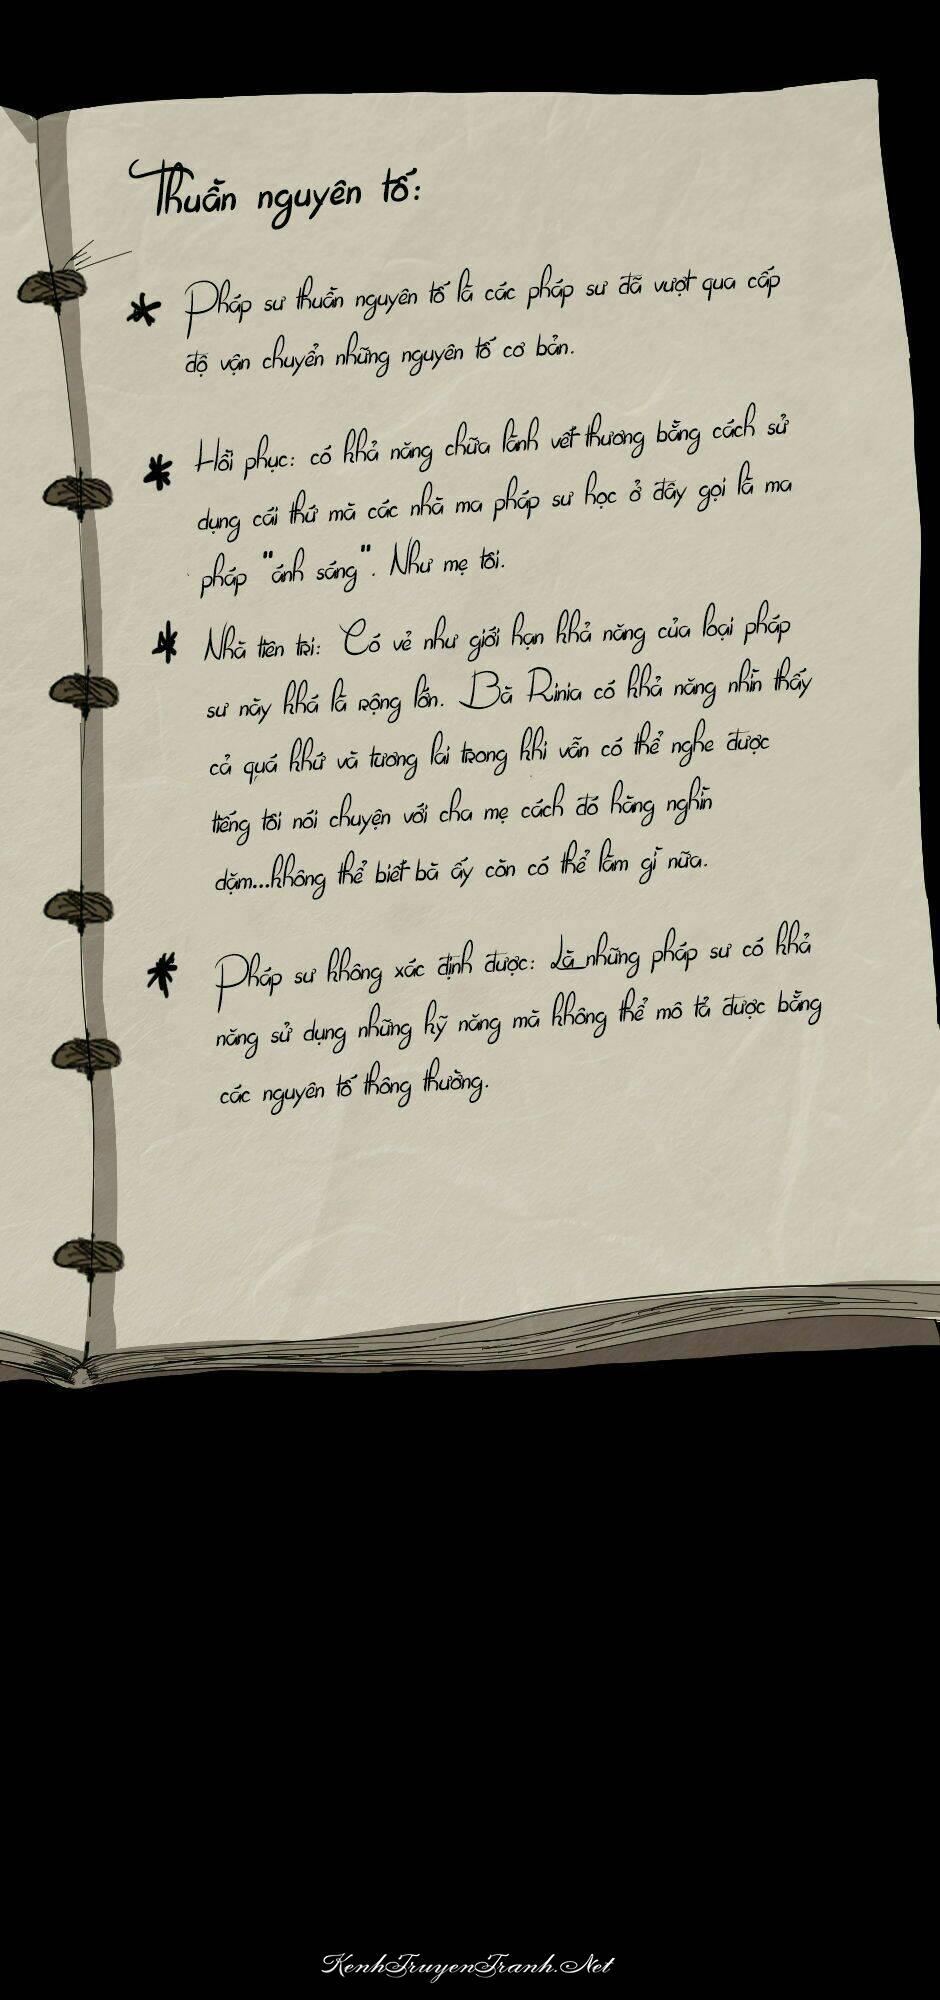 Thuần nguyên tố:
* Pháp sư thuần nguyên tố là các pháp sư đã vượt qua cấp
độ vận chuyển những nguyên tố cơ bản.
* Hồi phục: có khả năng chữa lành vết thương bằng cách sử
dụng cái thứ mà các nhà ma pháp sư học ở đây gọi là ma
pháp "ánh sáng". Như mẹ tôi.
* Nhà tiên tri: Có vẻ như giới hạn khả năng của loại pháp
sư này khá là rộng lớn. Bà Rinia có khả năng nhìn thấy
cả quá khứ và tương lai trong khi vẫn có thể nghe được
tiếng tôi nói chuyện với cha mẹ cách đó hàng nghìn
dặm...không thể biết bà ấy còn có thể làm gì nữa.
* Pháp sư không xác định được: Là những pháp sư có khả
năng sử dụng những kỹ năng mà không thể mô tả được bằng
các nguyên tố thông thường.
KenhTruyenTranh.Net